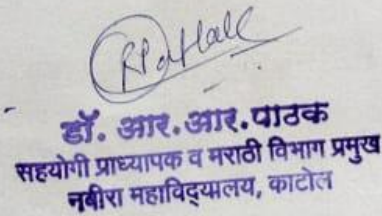 डॉ. आर.आर.पाठक
सहयोगी प्राध्यापक व मराठी विभाग प्रमुख
नबीरा महाविद्यालय, काटोल